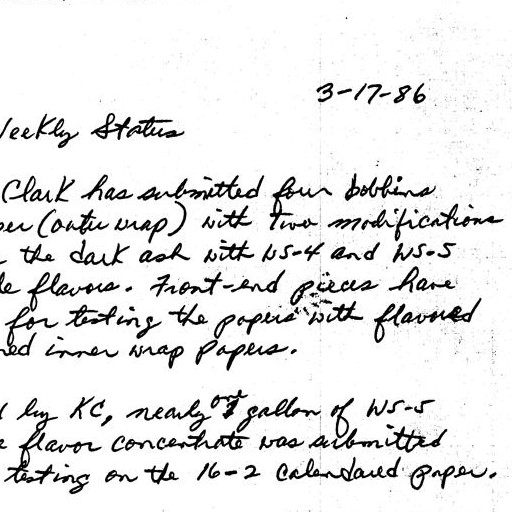 3-17-86
Weekly Status
Clark has submitted four bobbins
per (outer wrap) with two modifications
the dark ash with WS-4 and WS-5
le flavors. Front-end pieces have
for testing the papers with flavored
red inner wrap papers.
d by KC, nearly one gallon of WS-5
e flavor concentrate was submitted
testing on the 16-2 calendared paper.